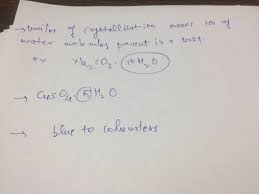 → Water of crystallization means no of
water molecules present in a salt.
ex Na₂CO₃. 10H₂O
→ CuSO₄. 5H₂O
→ blue to colourless